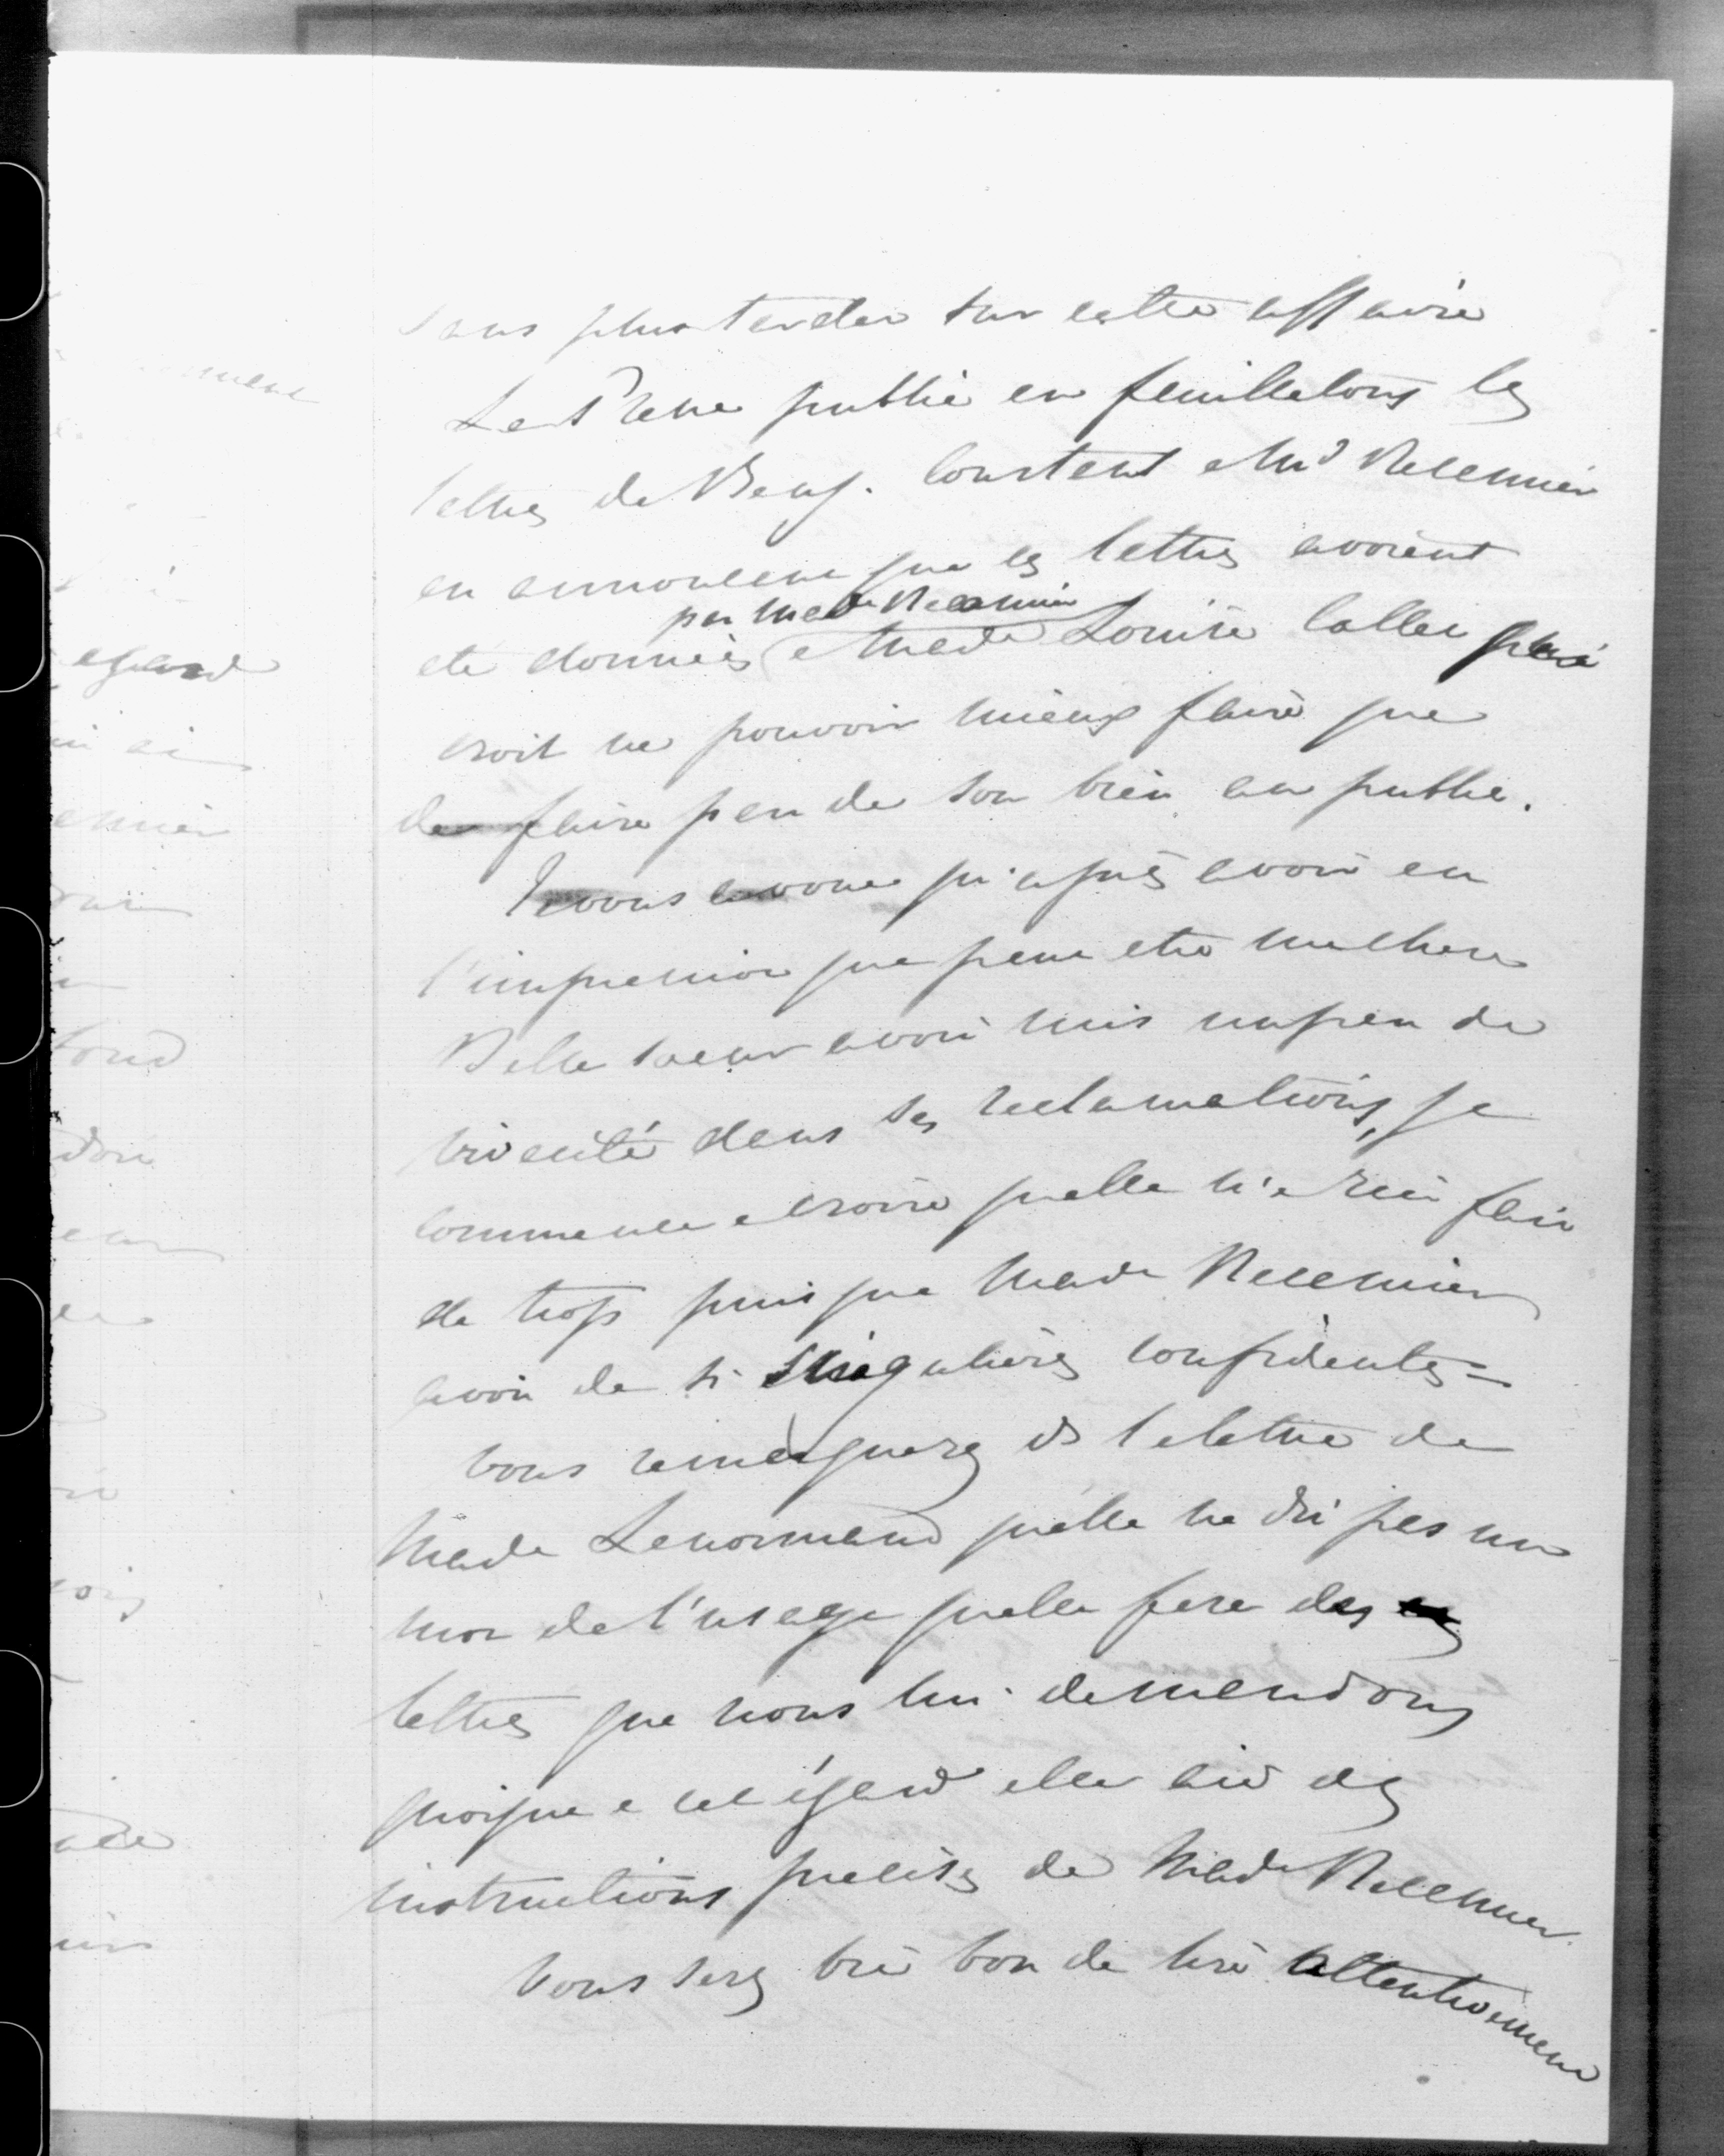 sans plus tarder sur cette affaire
La Presse publie en feuilletons les
lettres de Benj. Constant a Md Recamier
en annoncant que ces lettres avoient
par Made Recamier
ete donnees a Made Louise Collet qui
croit ne pouvoir mieux faire que
de faire part de son bien au public.
Je vous avoue qu'apres avoir eu
l'impression que peut etre ma chere
Belle soeur avoit mis un peu de
vivacité dans ses reclamations, je
commence a croire quelle n'a rien fait
de trop puisque Made Recamier
avoit de si singulieres confidentes =
Vous remarquerez ds la lettre de
Made Lenormand quelle ne dit pas un
mot de l'usage quelle fera des
lettres que nous lui demandons
quoique a cet égard elle ait des
instructions precises de Made Recamier
Vous serez bien bon de lire attentivement
ment
egard
emier
tond